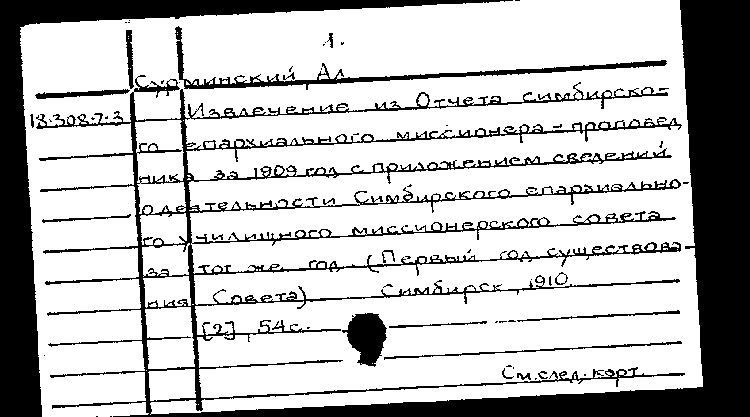 1.
Сурминский, Ал.
18.308.7.3 Извлечение из Отчета симбирско-
го епархиального миссионера-проповед
ника за 1909 год с приложением сведений
о деятельности Симбирского епархиально-
го училищного миссионерского совета
за тот же год. (Первый год существова-
ния Совета) Симбирск, 1910.
[2], 54 с.
См. след. карт.